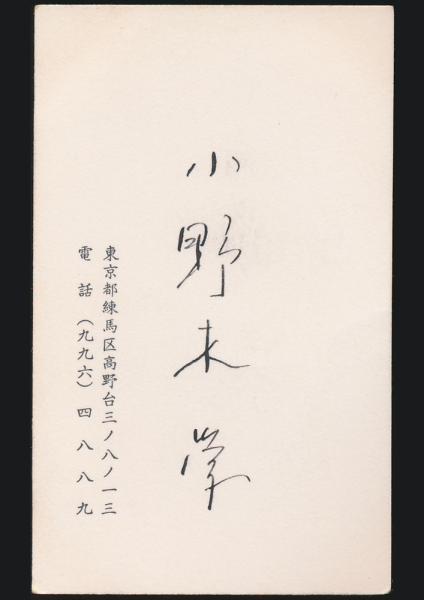 小野木学
東京都練馬区高野台三ノ八ノ一三
電話（九九六）四八八九